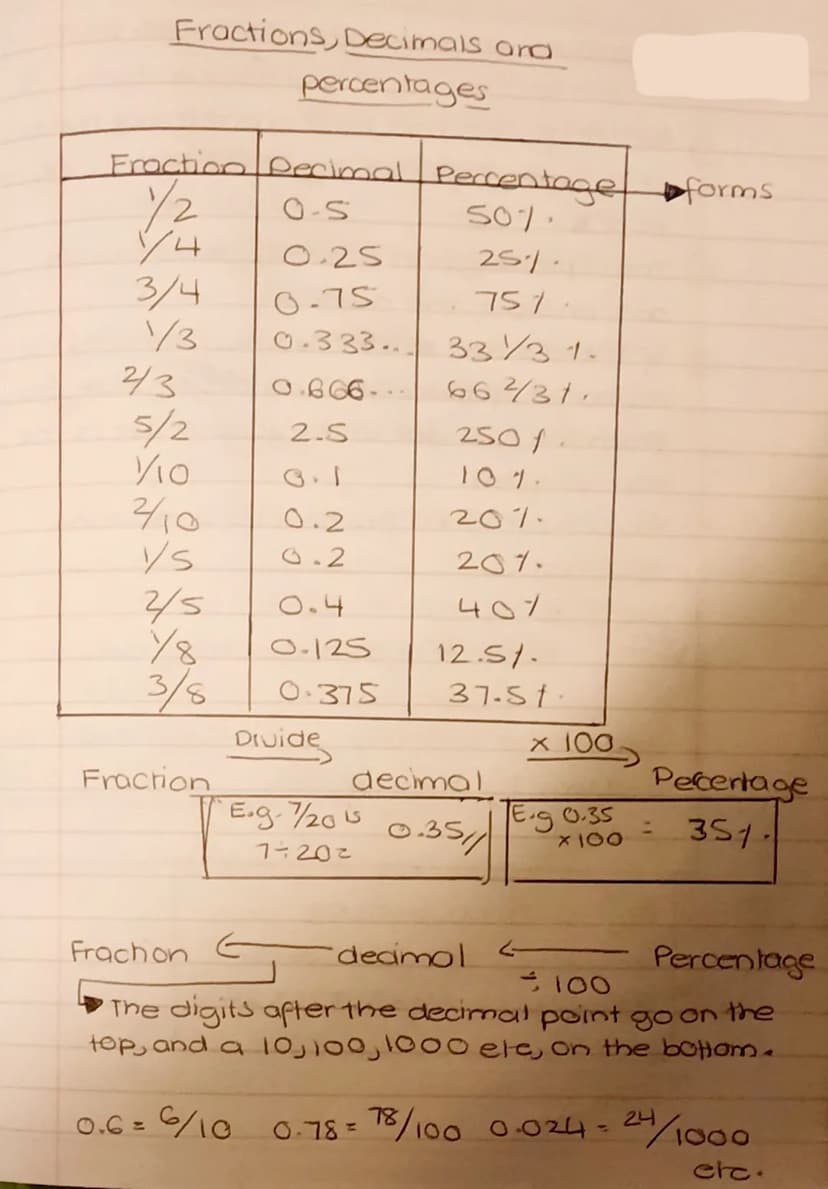 Fractions, Decimals and
percentages
Fraction Decimal Percentage forms
1/2 0.5 50%.
1/4 0.25 25%.
3/4 0.75 75%.
1/3 0.333... 33 1/3 %.
2/3 0.666... 66 2/3 %.
5/2 2.5 250%.
1/10 0.1 10%.
2/10 0.2 20%.
1/5 0.2 20%.
2/5 0.4 40%
1/8 0.125 12.5%.
3/8 0.375 37.5%.
Divide × 100
Fraction decimal Pecertage
E.g. 7/20 is 0.35// E.g 0.35 = 35%.
7÷20= ×100
Frachon decimal Percentage
÷ 100
The digits after the decimal point go on the
top, and a 10, 100, 1000 etc, on the bottom.
0.6 = 6/10 0.78 = 78/100 0.024 = 24/1000
etc.